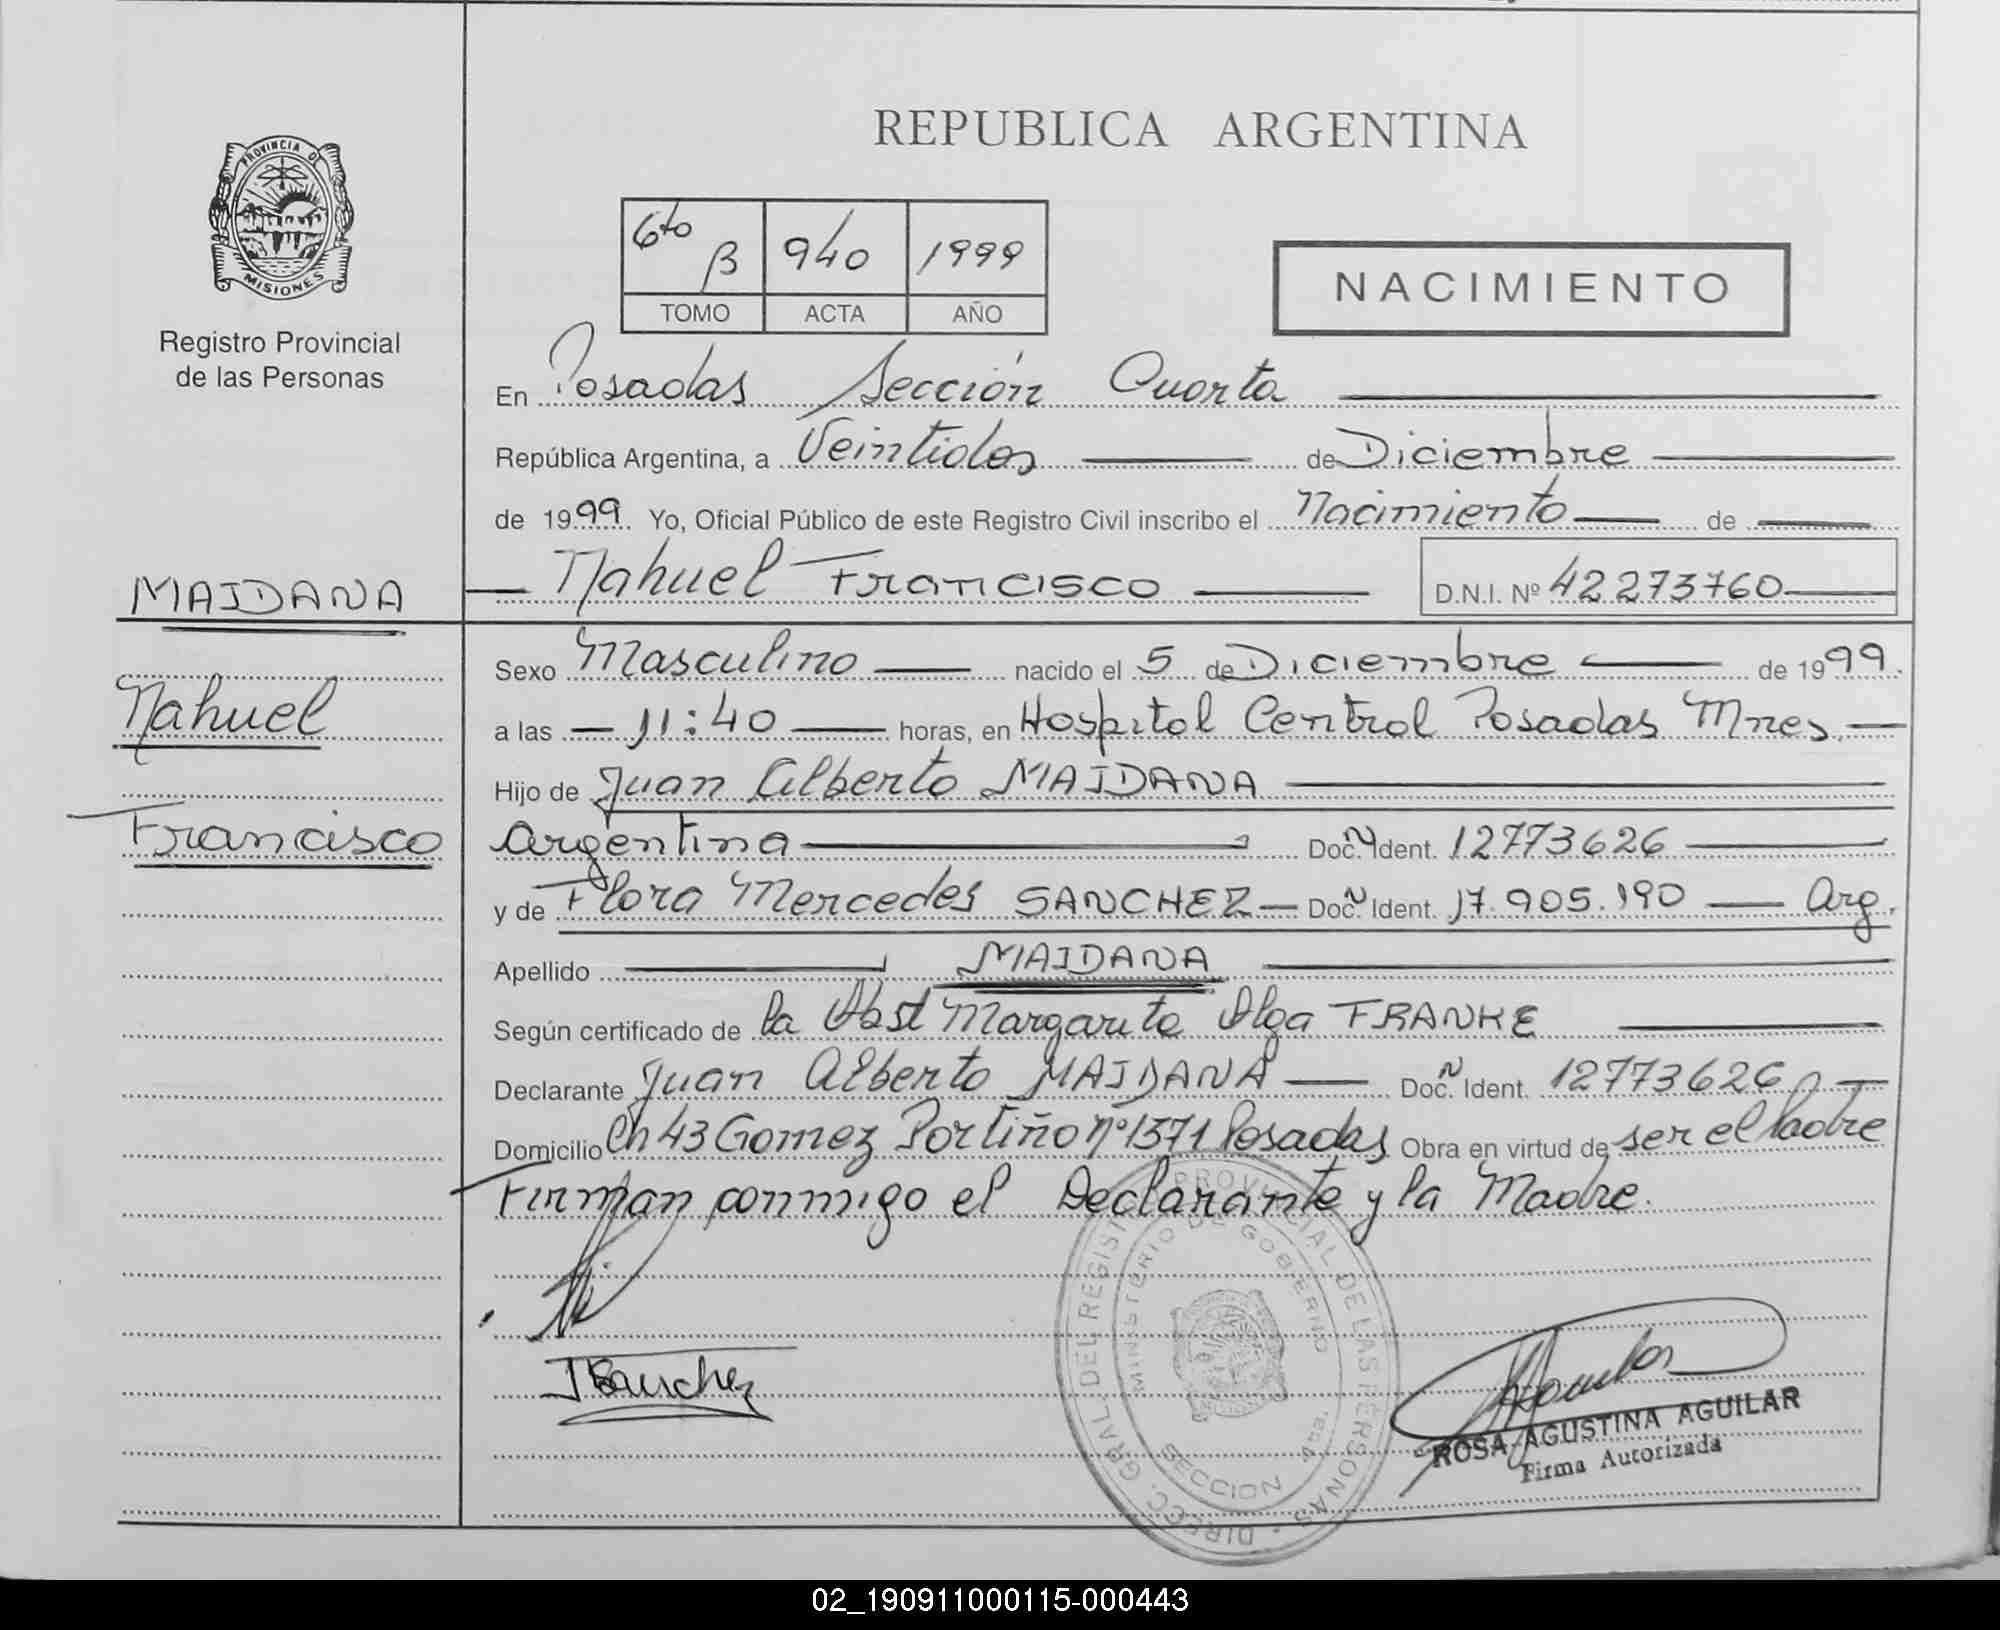 REPUBLICA ARGENTINA
PROVINCIA DE
MISIONES
Registro Provincial
de las Personas
6to B 940 1999
TOMO ACTA AÑO
NACIMIENTO
En Posadas Sección Cuarta
República Argentina, a Veintidos de Diciembre
de 1999. Yo, Oficial Público de este Registro Civil inscribo el Nacimiento de
Nahuel Francisco D.N.I. Nº 42273760
MAIDANA
Nahuel
Francisco
Sexo Masculino nacido el 5 de Diciembre de 1999.
a las 11:40 horas, en Hospital Central Posadas Mnes.
Hijo de Juan Alberto MAIDANA
Argentina Doc. Ñ Ident. 12773626
y de Flora Mercedes SANCHEZ Doc. Ñ Ident. 17.905.190 Arg.
Apellido MAIDANA
Según certificado de la Obst Margarita Olga FRANKE
Declarante Juan Alberto MAIDANA Doc. Ñ Ident. 12773626
Domicilio Ch 43 Gomez Portiño nº 1371 Posadas Obra en virtud de ser el Padre
Firman conmigo el Declarante y la Madre.
DIREC. GRAL. DEL REGISTRO PROVINCIAL DE LAS PERSONAS
MINISTERIO DE GOBIERNO
SECCION 4ta.
Sanchez
ROSA AGUSTINA AGUILAR
Firma Autorizada
02_190911000115-000443